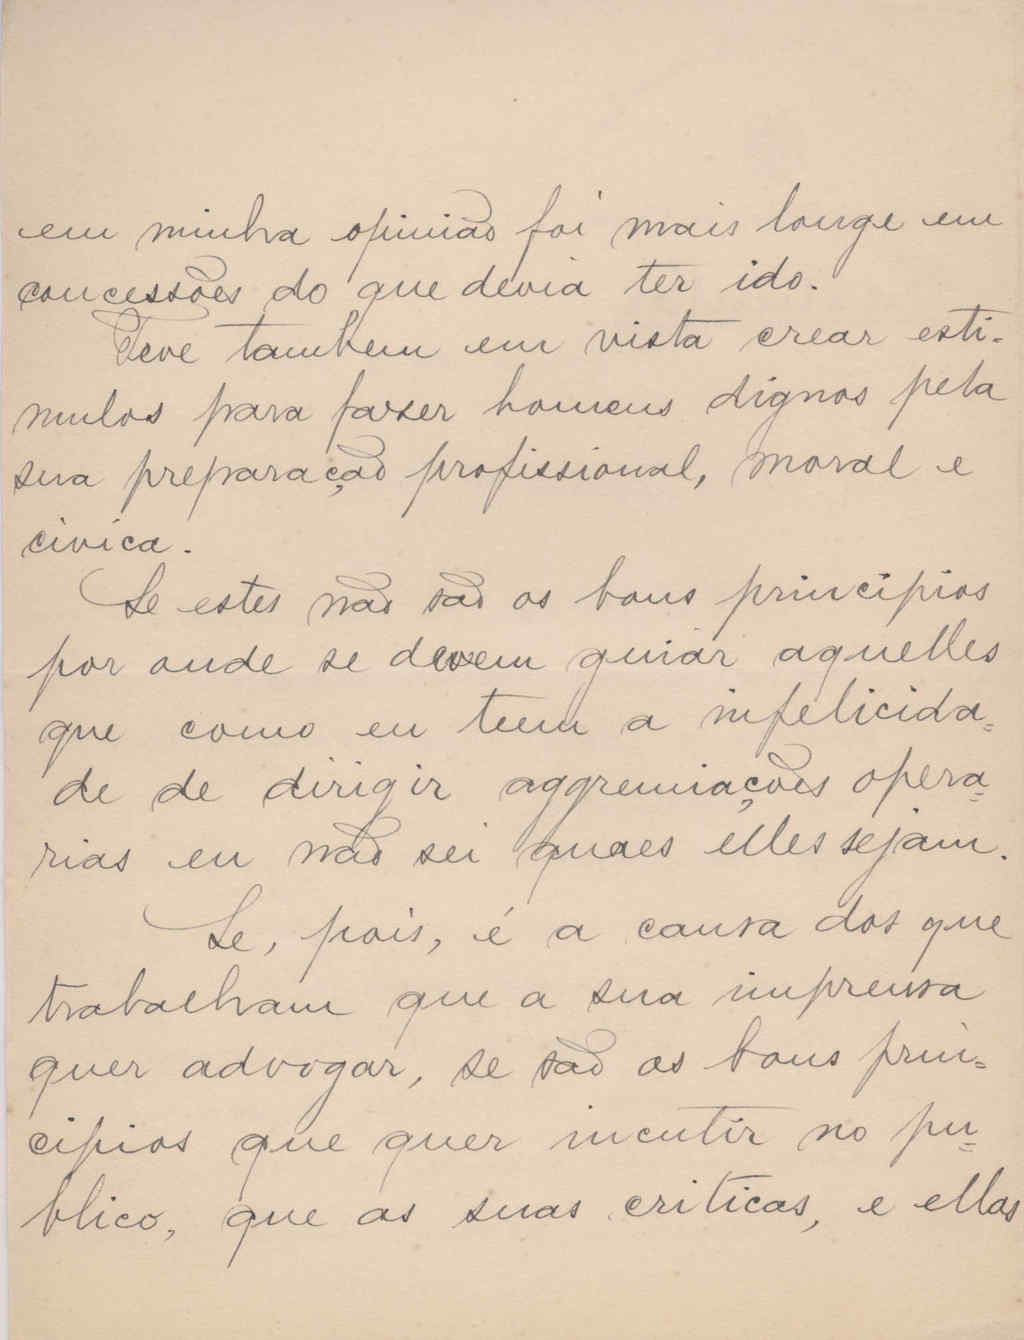 em minha opinião foi mais longe em
concessões do que devia ter ido.
Teve tambem em vista crear esti-
mulos para fazer homens dignos pela
sua preparação profissional, moral e
civica.
Se estes não são os bons principios
por onde se devem guiar aquelles
que como eu teem a infelicida=
de de dirigir aggremiações opera=
rias eu não sei quaes elles sejam.
Se, pois, é a causa dos que
trabalham que a sua imprensa
quer advogar, se são os bons prin=
cipios que quer incutir no pu=
blico, que as suas criticas, e ellas